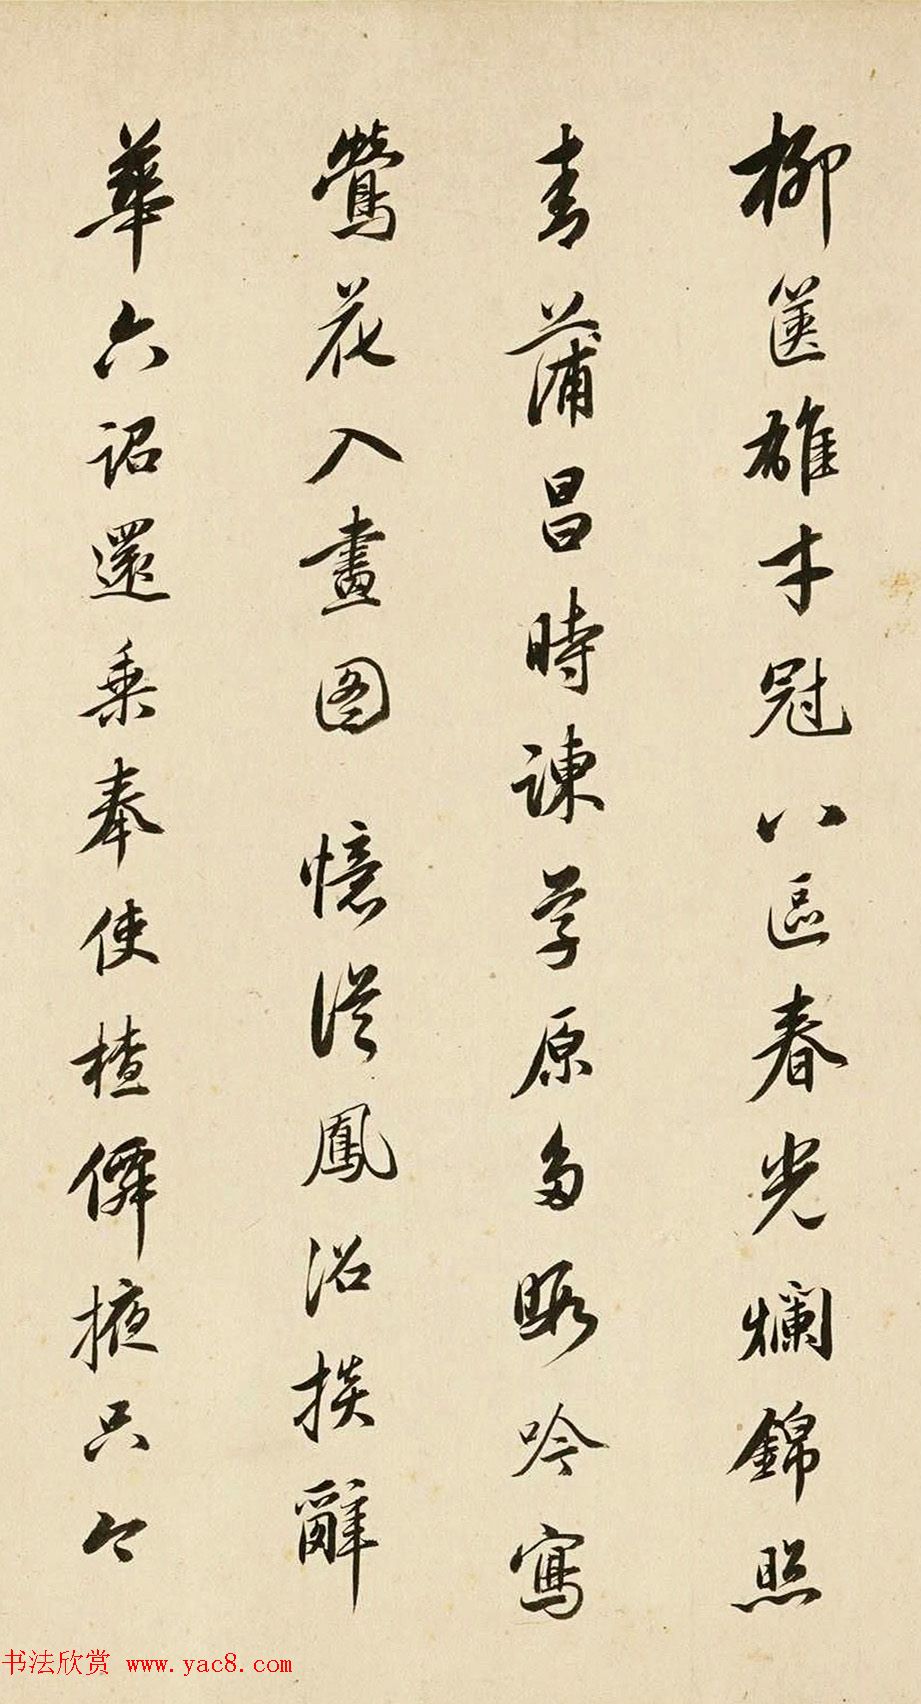 柳篋雄才冠八區春光爛錦照
青蒲昌時諫學原多暇吟寫
鶯花入畫圖憶從鳳沼掞辭
華六詔還乘奉使楂僊掖只今
书法欣赏 www.yac8.com